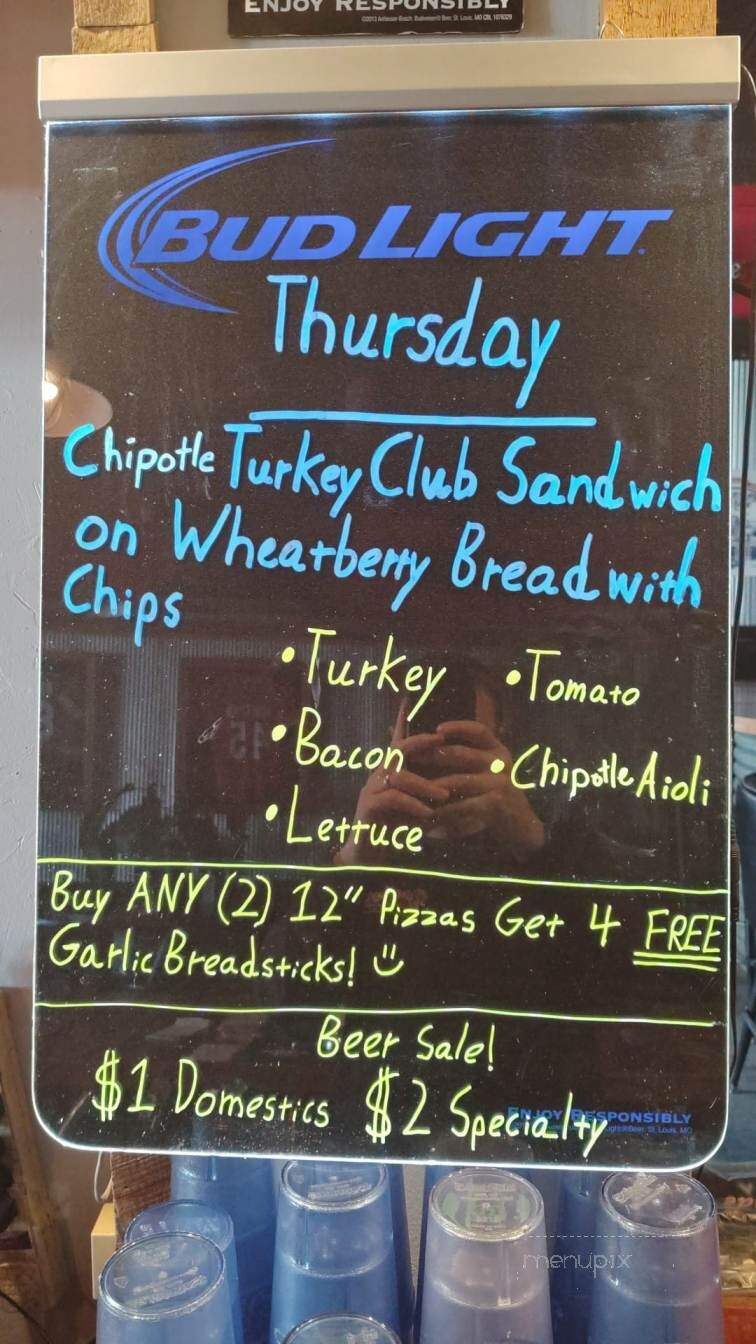 ENJOY RESPONSIBLY
©2013 Anheuser-Busch, Budweiser® Beer, St. Louis, MO
BUD LIGHT
Thursday
Chipotle Turkey Club Sandwich
on Wheatberry Bread with
Chips
•Turkey •Tomato
•Bacon •Chipotle Aioli
•Lettuce
Buy ANY (2) 12" Pizzas Get 4 FREE
Garlic Breadsticks!
Beer Sale!
$1 Domestics $2 Specialty
ENJOY RESPONSIBLY
Beer, St. Louis, MO
menupix